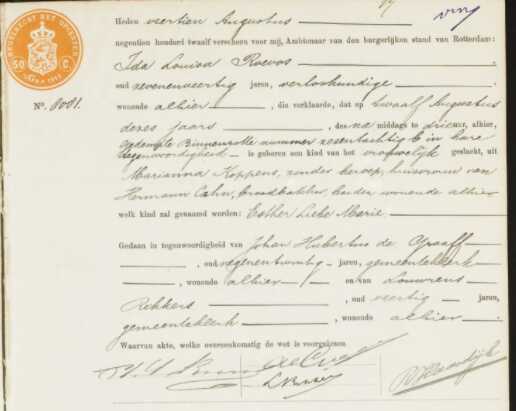 Heden veertien Augustus
negentien honderd twaalf verscheen voor mij, Ambtenaar van den burgerlijken stand van Rotterdam:
Ida Louisa
oud zevenenveertig jaren, verloskundige
Nº. 8081. wonende alhier, die verklaarde, dat op twaalf Augustus
dezes jaars, des na middags te drie ure, alhier,
Binnenrotte nummer zesentachtig b in hare
tegenwoordigheid is geboren een kind van het vrouwelijk geslacht, uit
Marianna Koppens, zonder beroep, huisvrouw van
Hermann Cahn, broodbakker, beiden wonende alhier
welk kind zal genaamd worden: Esther Marie
Gedaan in tegenwoordigheid van Johan Hubertus de Graaff
, oud negenentwintig jaren, gemeenteklerk
, wonende alhier en van Louwrens
Rekkers, oud veertig jaren,
gemeenteklerk, wonende alhier.
Waarvan akte, welke overeenkomstig de wet is voorgelezen
50 C